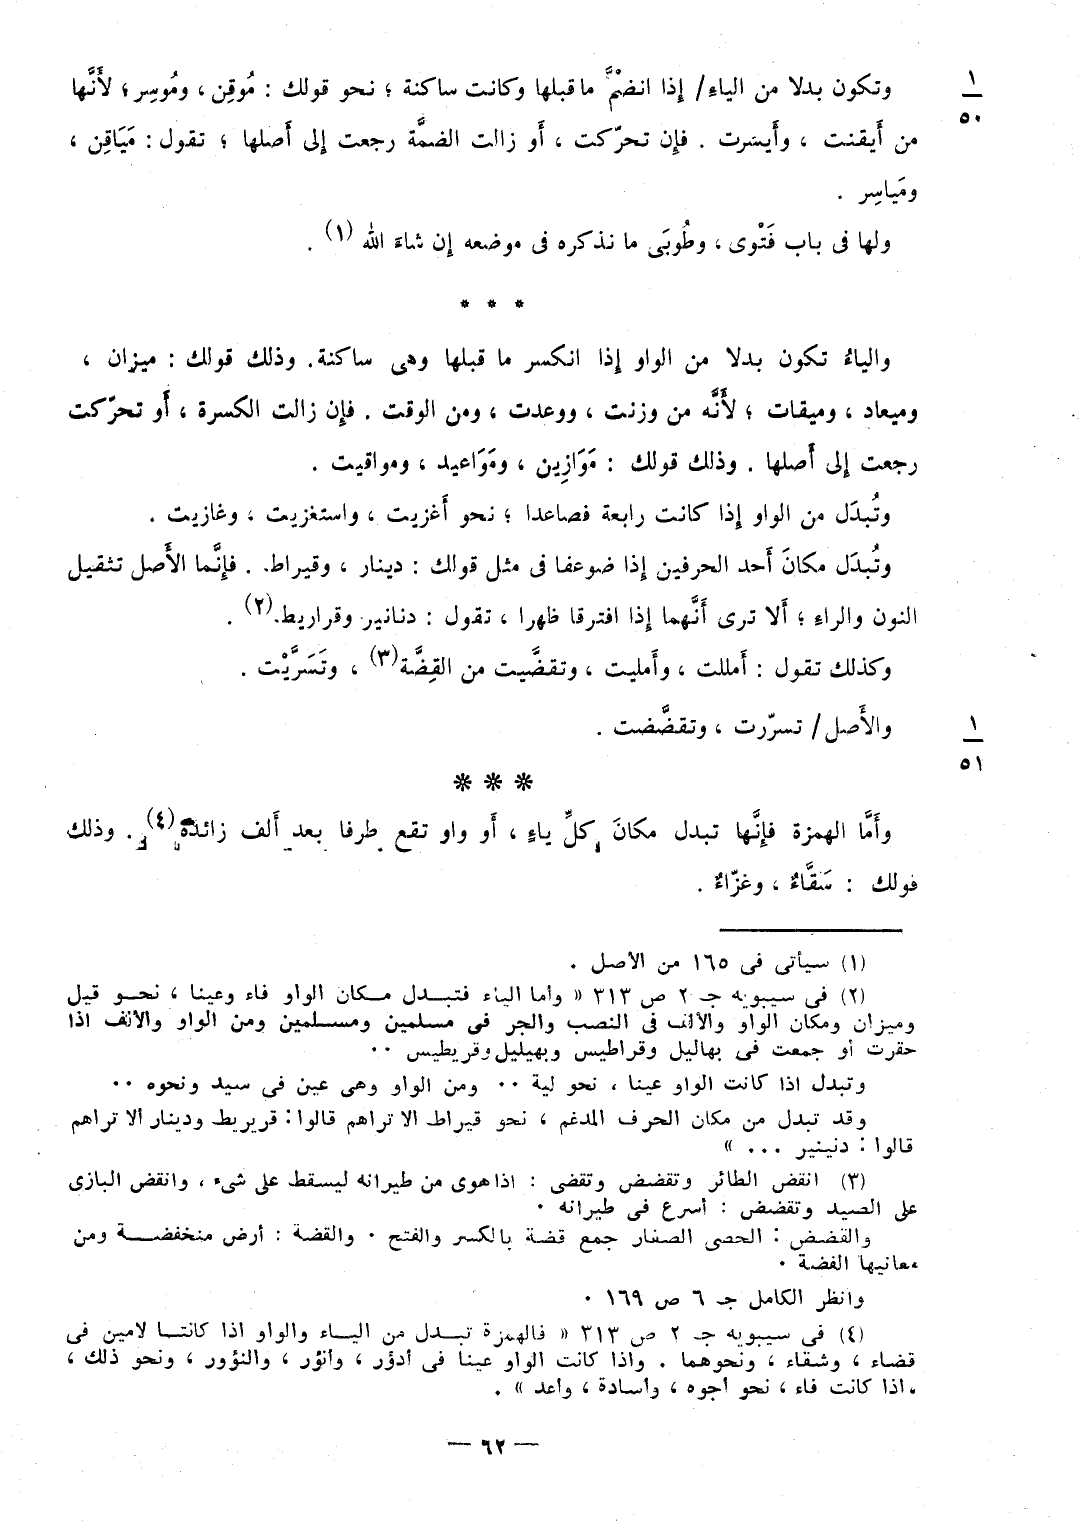 وتكون بدلا من الياء/ إذا انضمّ ما قبلها وكانت ساكنة ؛ نحو قولك : مُوقِن ، ومُوسِر ؛ لأَنَّها
١
٥٠
من أَيقنت ، وأَيسَرت . فإن تحرّكت ، أَو زالت الضمَّة رجعت إلى أَصلها ؛ تقول : مَيَاقِن ،
ومَياسِر .
ولها فى باب فَتْوى ، وطُوبَى ما نذكره فى موضعه إن شاءَ الله (١) .
* * *
والياءُ تكون بدلا من الواو إذا انكسر ما قبلها وهى ساكنة. وذلك قولك : ميزان ،
وميعاد ، وميقات ؛ لأَنَّه من وزنت ، ووعدت ، ومن الوقت . فإن زالت الكسرة ، أَو تحرّكت
رجعت إلى أَصلها . وذلك قولك : مَوَازِين ، ومَوَاعيد ، ومواقيت .
وتُبدَل من الواو إذا كانت رابعة فصاعدا ؛ نحو أَغزيت ، واستغزيت ، وغازيت .
وتُبدَل مكانَ أَحد الحرفين إذا ضوعفا فى مثل قولك : دينار ، وقيراط . فإنَّما الأَصل تثقيل
النون والراء ؛ أَلا ترى أَنَّهما إذا افترقا ظهرا ، تقول : دنانير وقراريط.(٢) .
وكذلك تقول : أَمللت ، وأَمليت ، وتقضَّيت من القِضَّة(٣) ، وتَسَرَّيْت .
والأَصل/ تسرّرت ، وتقضَّضت .
١
٥١
* * *
وأَمَّا الهمزة فإنَّها تبدل مكانَ كلِّ ياءٍ ، أَو واو تقع طرفا بعد أَلف زائدة(٤) . وذلك
قولك : سَقَّاءٌ ، وغزّاءٌ .
(١) سيأتى فى ١٦٥ من الأصل .
(٢) فى سيبويه جـ ٢ ص ٣١٣ « وأما الياء فتبدل مكان الواو فاء وعينا ، نحو قيل
وميزان ومكان الواو والألف فى النصب والجر فى مسلمين ومسلمين ومن الواو والألف اذا
حقرت أو جمعت فى بهاليل وقراطيس وبهيليل وقريطيس ..
وتبدل اذا كانت الواو عينا ، نحو لية .. ومن الواو وهى عين فى سيد ونحوه ..
وقد تبدل من مكان الحرف المدغم ، نحو قيراط الا تراهم قالوا : قريريط ودينار الا تراهم
قالوا : دنينير ... »
(٣) انقض الطائر وتقضض وتقضى : اذا هوى من طيرانه ليسقط على شىء ، وانقض البازى
على الصيد وتقضض : أسرع فى طيرانه .
والقضض : الحصى الصغار جمع قضة بالكسر والفتح . والقضة : أرض منخفضة ومن
معانيها الفضة .
وانظر الكامل جـ ٦ ص ١٦٩ .
(٤) فى سيبويه جـ ٢ ص ٣١٣ « فالهمزة تبدل من الياء والواو اذا كانتا لامين فى
قضاء ، وشقاء ، ونحوهما . واذا كانت الواو عينا فى أدؤر ، وأنؤر ، والنؤور ، ونحو ذلك ،
اذا كانت فاء ، نحو أجوه ، وأسادة ، وأعد » .
— ٦٢ —